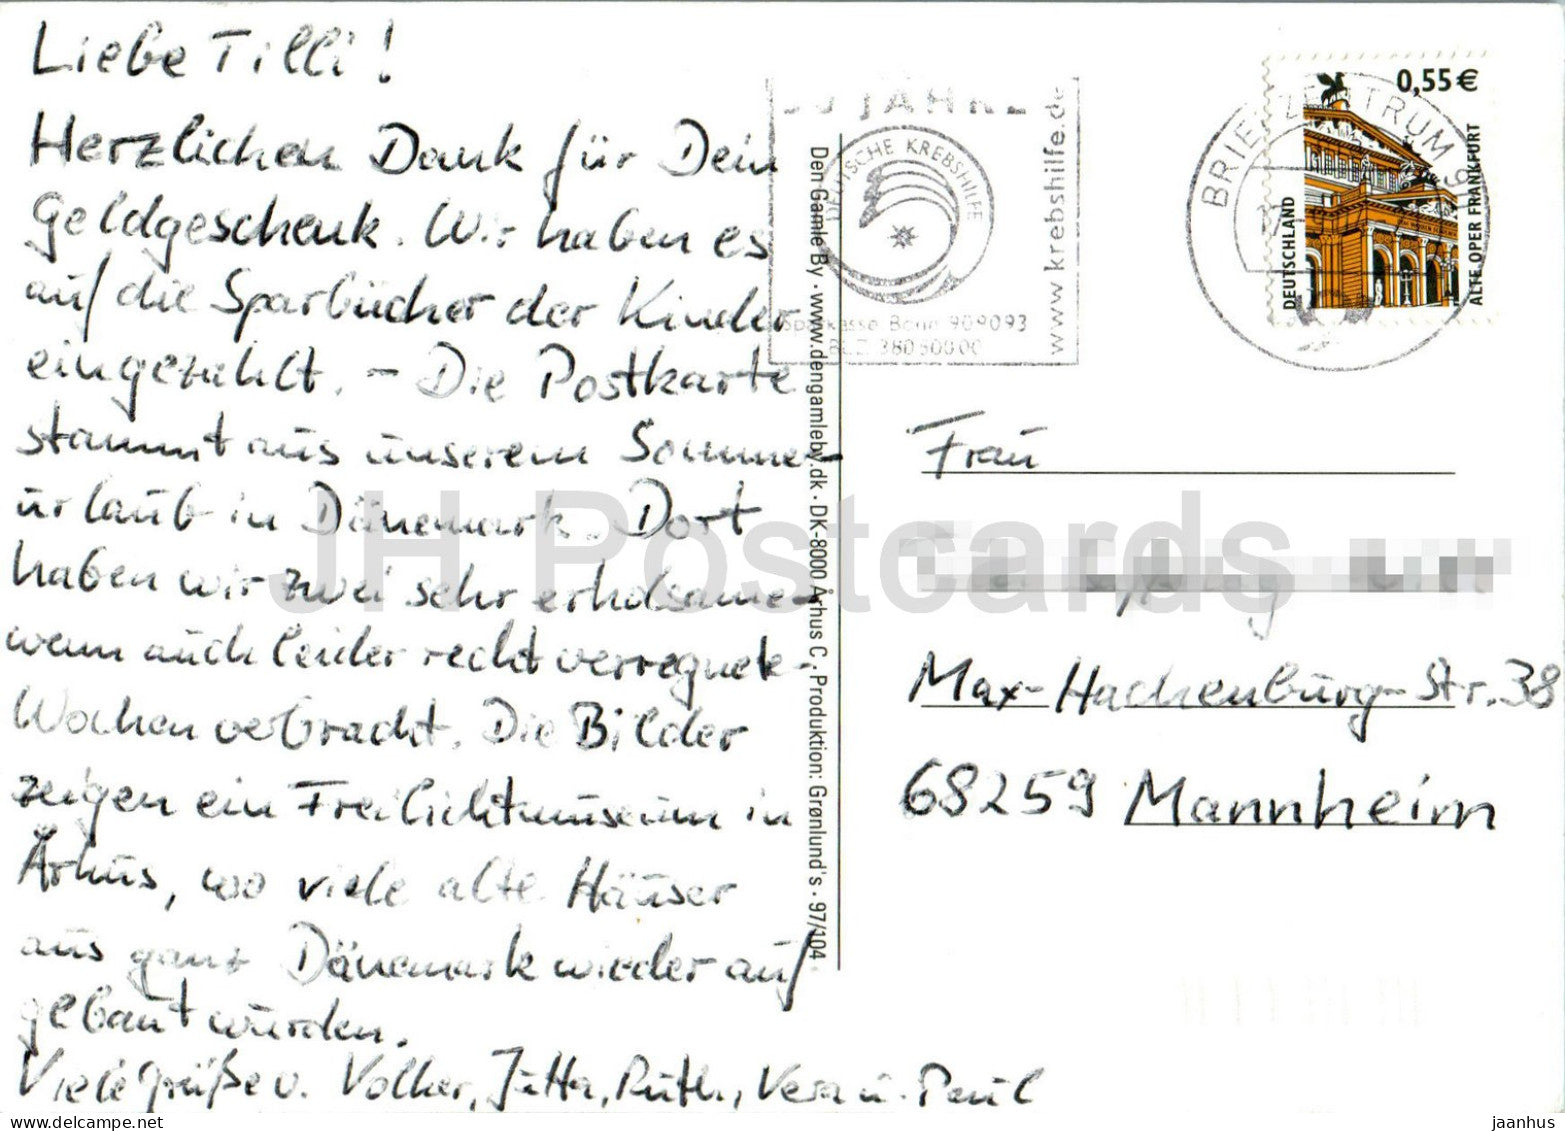 Liebe Tilli!
Herzlichen Dank für Dein
Geldgeschenk. Wir haben es
auf die Sparbücher der Kinder
eingezahlt. – Die Postkarte
stammt aus unserem Sommer-
urlaub in Dänemark. Dort
haben wir zwei sehr erholsame –
wenn auch leider recht verregnete –
Wochen verbracht. Die Bilder
zeigen ein Freilichtmuseum in
Århus, wo viele alte Häuser
aus ganz Dänemark wieder auf
gebaut wurden.
Viele Grüße v. Volker, Jutta, Ruth, Vera u. Paul
Den Gamle By · www.dengamleby.dk · DK-8000 Århus C · Produktion: Grønlund's · 97/104
JAHRE
DEUTSCHE KREBSHILFE
www.krebshilfe.de
Sparkasse Bonn 909093
BLZ 38050000
BRIEFZENTRUM
0,55€
DEUTSCHLAND
ALTE OPER FRANKFURT
Frau
Max-Hachenburg-Str. 38
68259 Mannheim
JH Postcards
delcampe.net
jaanhus